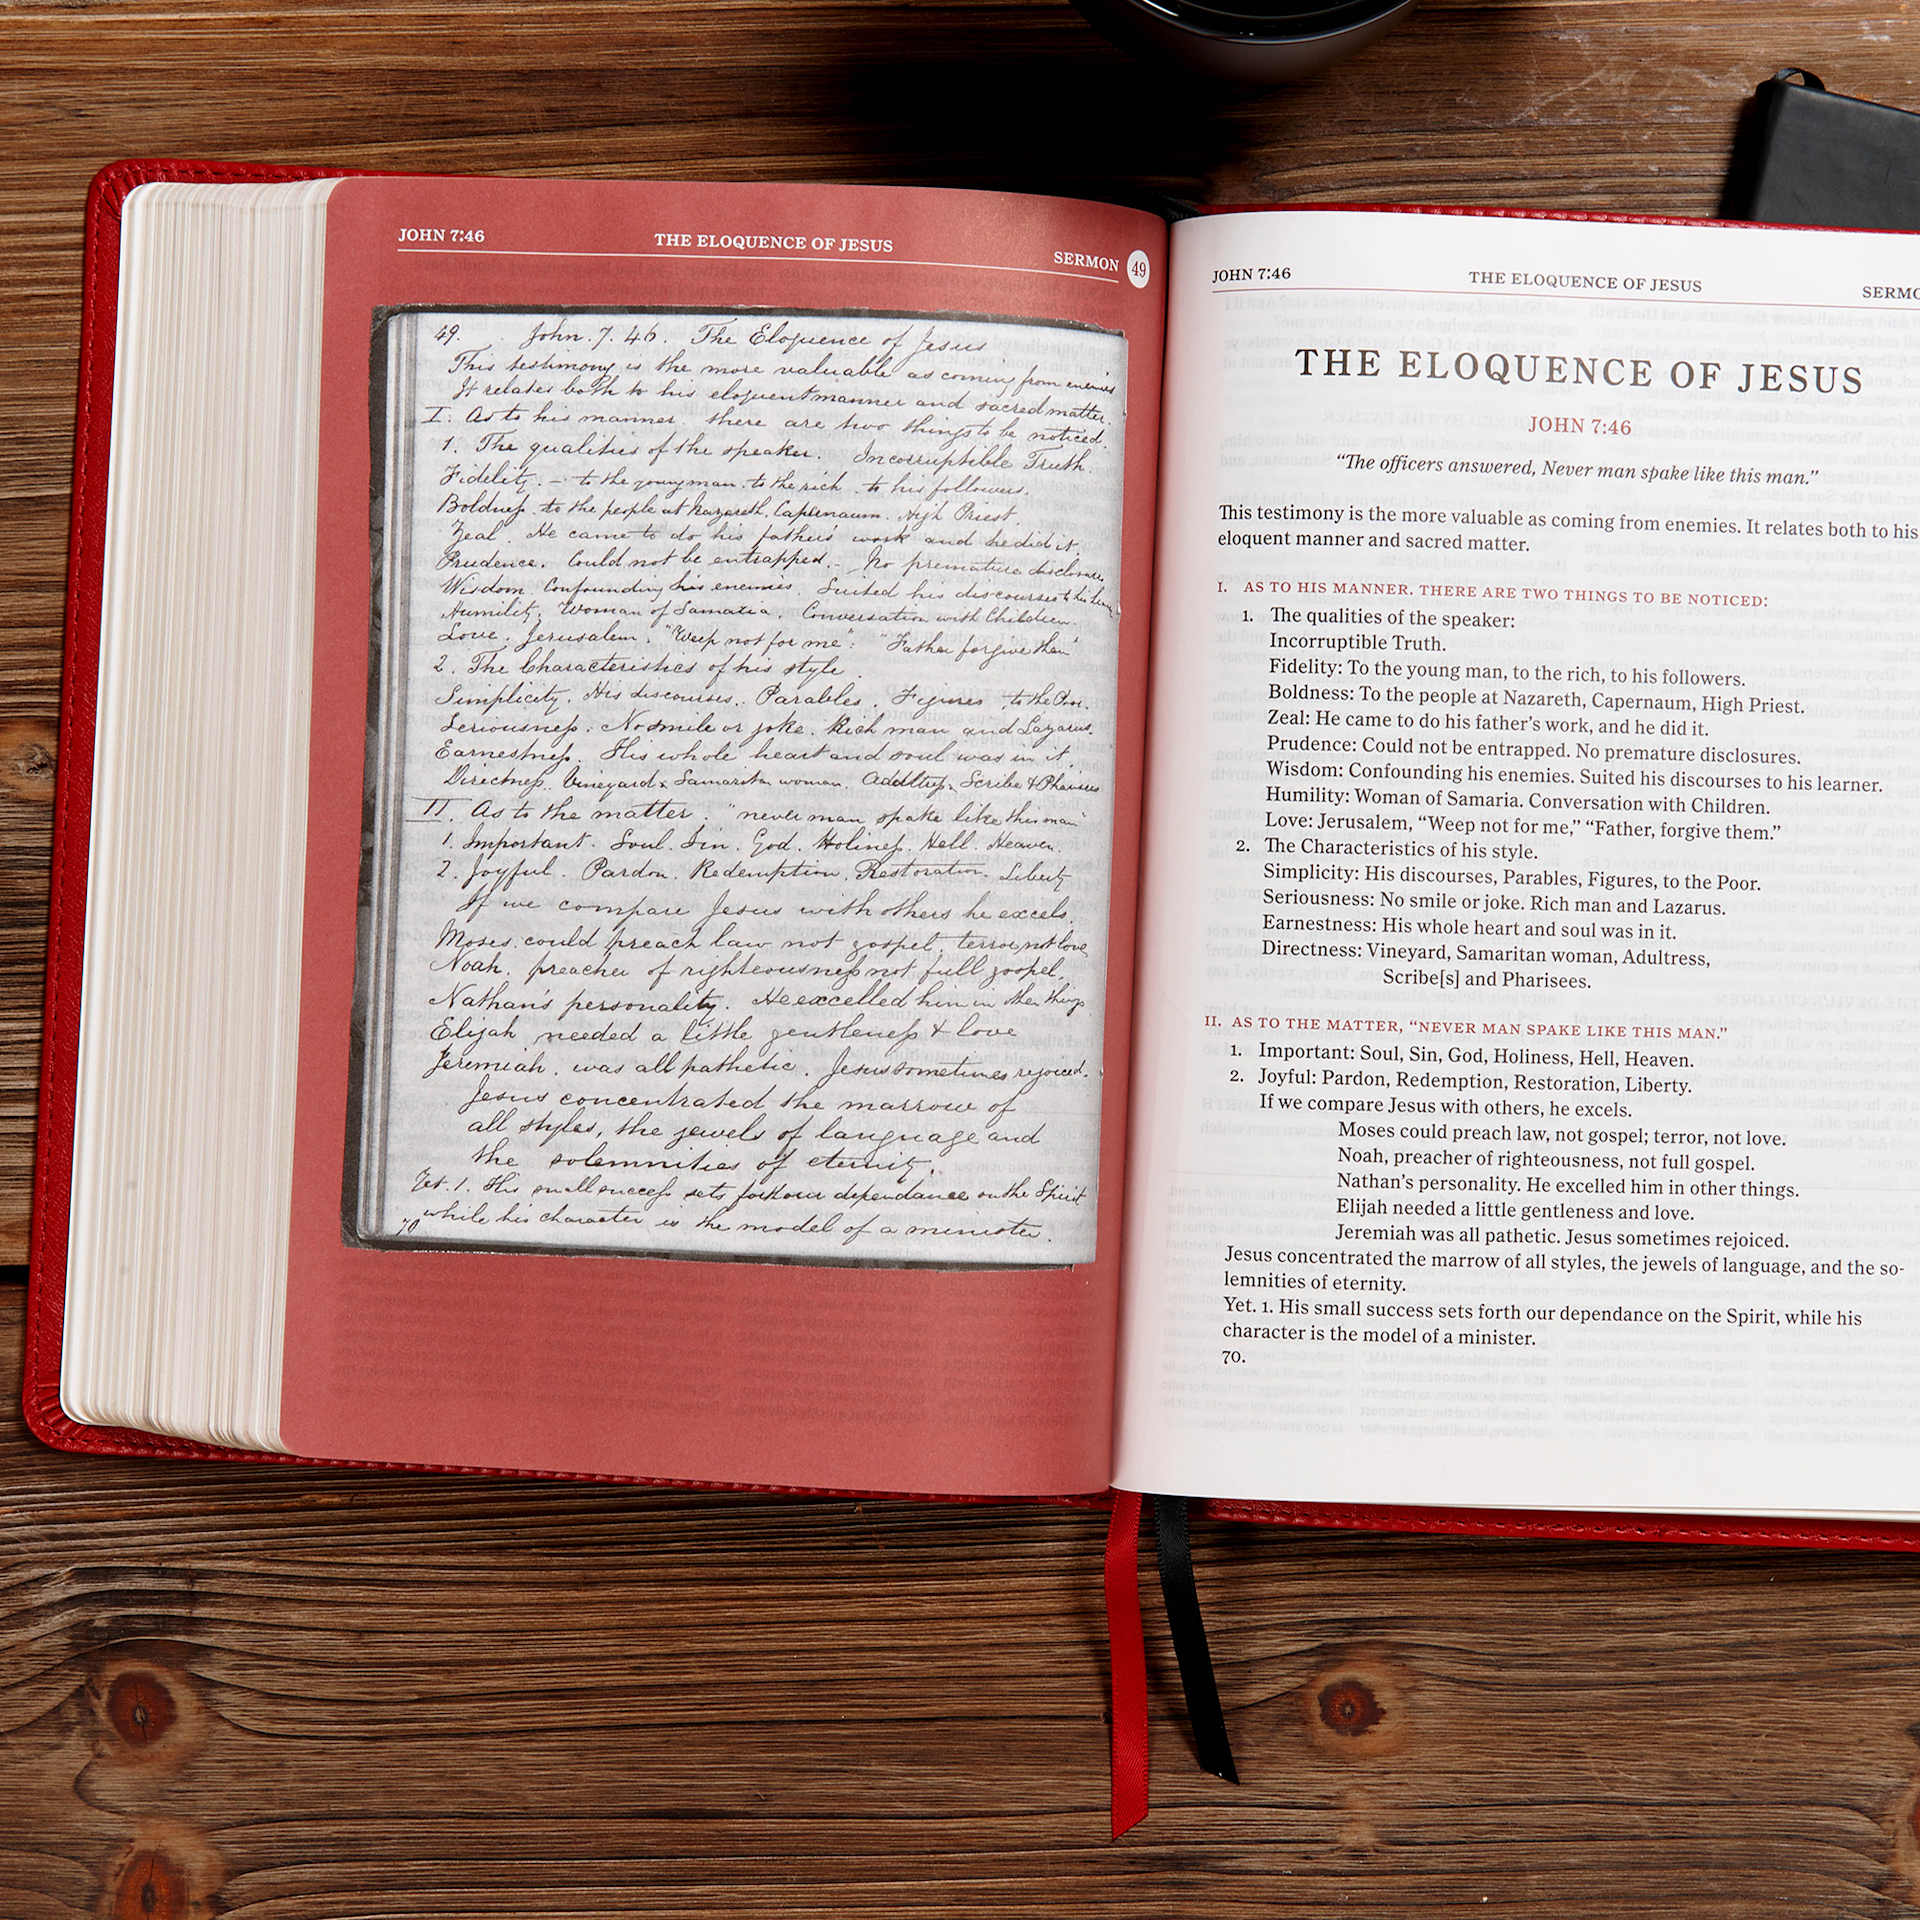 JOHN 7:46 THE ELOQUENCE OF JESUS SERMON 49
49. John. 7. 46. The Eloquence of Jesus
This testimony is the more valuable as coming from enemies
It relates both to his eloquent manner and sacred matter.
I. As to his manner. there are two things to be noticed.
1. The qualities of the speaker. Incorruptible Truth.
Fidelity. – to the young man. to the rich. to his followers.
Boldness. to the people at Nazareth. Capernaum. High Priest.
Zeal. He came to do his father's work and he did it.
Prudence. Could not be entrapped. – No premature disclosures
Wisdom. Confounding his enemies. Suited his discourses to his
Humility. Woman of Samaria. Conversation with Children.
Love. Jerusalem. "Weep not for me". "Father forgive them"
2. The Characteristics of his style.
Simplicity. His discourses. Parables. Figures to the Poor.
Seriousness. No smile or joke. Rich man and Lazarus.
Earnestness. His whole heart and soul was in it.
Directness. Vineyard. Samaritan woman. Scribe & Pharisees
II. As to the matter. "never man spake like this man"
1. Important. Soul. Sin. God. Holiness. Hell. Heaven.
2. Joyful. Pardon. Redemption. Restoration. Liberty
If we compare Jesus with others he excels.
Moses. could preach law not gospel. terror, not love
Noah. preacher of righteousness not full gospel.
Nathan's personality. He excelled him in other things
Elijah needed a little gentleness & love
Jeremiah. was all pathetic. Jesus sometimes rejoiced.
Jesus concentrated the marrow of
all styles, the jewels of language and
the solemnities of eternity.
Yet. 1. His small success sets forth our dependance on the Spirit
while his character is the model of a minister.
70
JOHN 7:46 THE ELOQUENCE OF JESUS
THE ELOQUENCE OF JESUS
JOHN 7:46
“The officers answered, Never man spake like this man.”
This testimony is the more valuable as coming from enemies. It relates both to his
eloquent manner and sacred matter.
I. AS TO HIS MANNER. THERE ARE TWO THINGS TO BE NOTICED:
1. The qualities of the speaker:
Incorruptible Truth.
Fidelity: To the young man, to the rich, to his followers.
Boldness: To the people at Nazareth, Capernaum, High Priest.
Zeal: He came to do his father’s work, and he did it.
Prudence: Could not be entrapped. No premature disclosures.
Wisdom: Confounding his enemies. Suited his discourses to his learner.
Humility: Woman of Samaria. Conversation with Children.
Love: Jerusalem, “Weep not for me,” “Father, forgive them.”
2. The Characteristics of his style.
Simplicity: His discourses, Parables, Figures, to the Poor.
Seriousness: No smile or joke. Rich man and Lazarus.
Earnestness: His whole heart and soul was in it.
Directness: Vineyard, Samaritan woman, Adultress,
Scribe[s] and Pharisees.
II. AS TO THE MATTER, “NEVER MAN SPAKE LIKE THIS MAN.”
1. Important: Soul, Sin, God, Holiness, Hell, Heaven.
2. Joyful: Pardon, Redemption, Restoration, Liberty.
If we compare Jesus with others, he excels.
Moses could preach law, not gospel; terror, not love.
Noah, preacher of righteousness, not full gospel.
Nathan’s personality. He excelled him in other things.
Elijah needed a little gentleness and love.
Jeremiah was all pathetic. Jesus sometimes rejoiced.
Jesus concentrated the marrow of all styles, the jewels of language, and the so-
lemnities of eternity.
Yet. 1. His small success sets forth our dependance on the Spirit, while his
character is the model of a minister.
70.